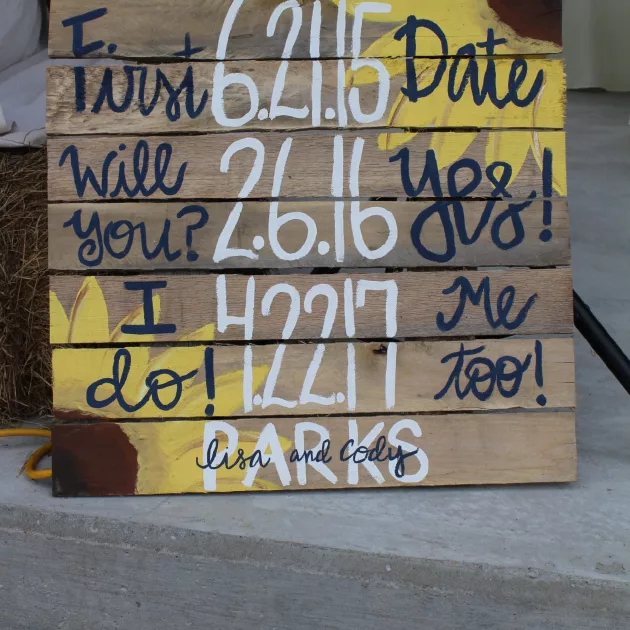 First 6.21.15 Date
Will 2.6.16 Yes!
you?
I 4.22.17 Me
do! too!
PARKS
lisa and Cody